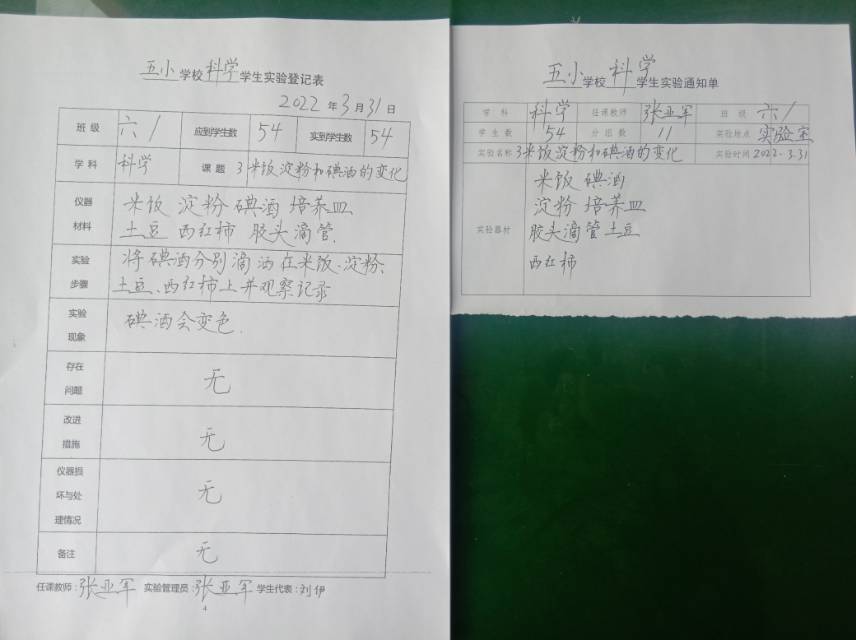 五小学校科学学生实验登记表
2022年3月31日
班级 六1 应到学生数 54 实到学生数 54
学科 科学 课题 3米饭淀粉和碘酒的变化
仪器材料 米饭 淀粉 碘酒 培养皿
土豆 西红柿 胶头滴管.
实验步骤 将碘酒分别滴洒在米饭、淀粉、
土豆、西红柿上并观察记录
实验现象 碘酒会变色.
存在问题 无
改进措施 无
仪器损坏与处理情况 无
备注 无
任课教师:张亚军 实验管理员:张亚军 学生代表:刘伊
4
五小学校科学学生实验通知单
学科 科学 任课教师 张亚军 班级 六1
学生数 54 分组数 11 实验地点 实验室
实验名称 3米饭淀粉和碘酒的变化 实验时间 2022.3.31
实验器材 米饭 碘酒
淀粉 培养皿
胶头滴管 土豆
西红柿